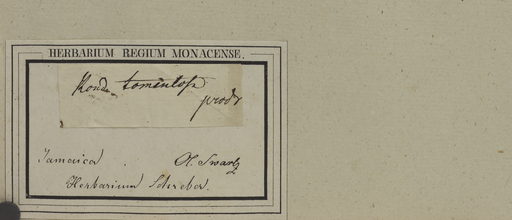 HERBARIUM REGIUM MONACENSE.
Rond. tomentosa
prodr
Jamaica. Ol. Swartz
Herbarium Schreber.